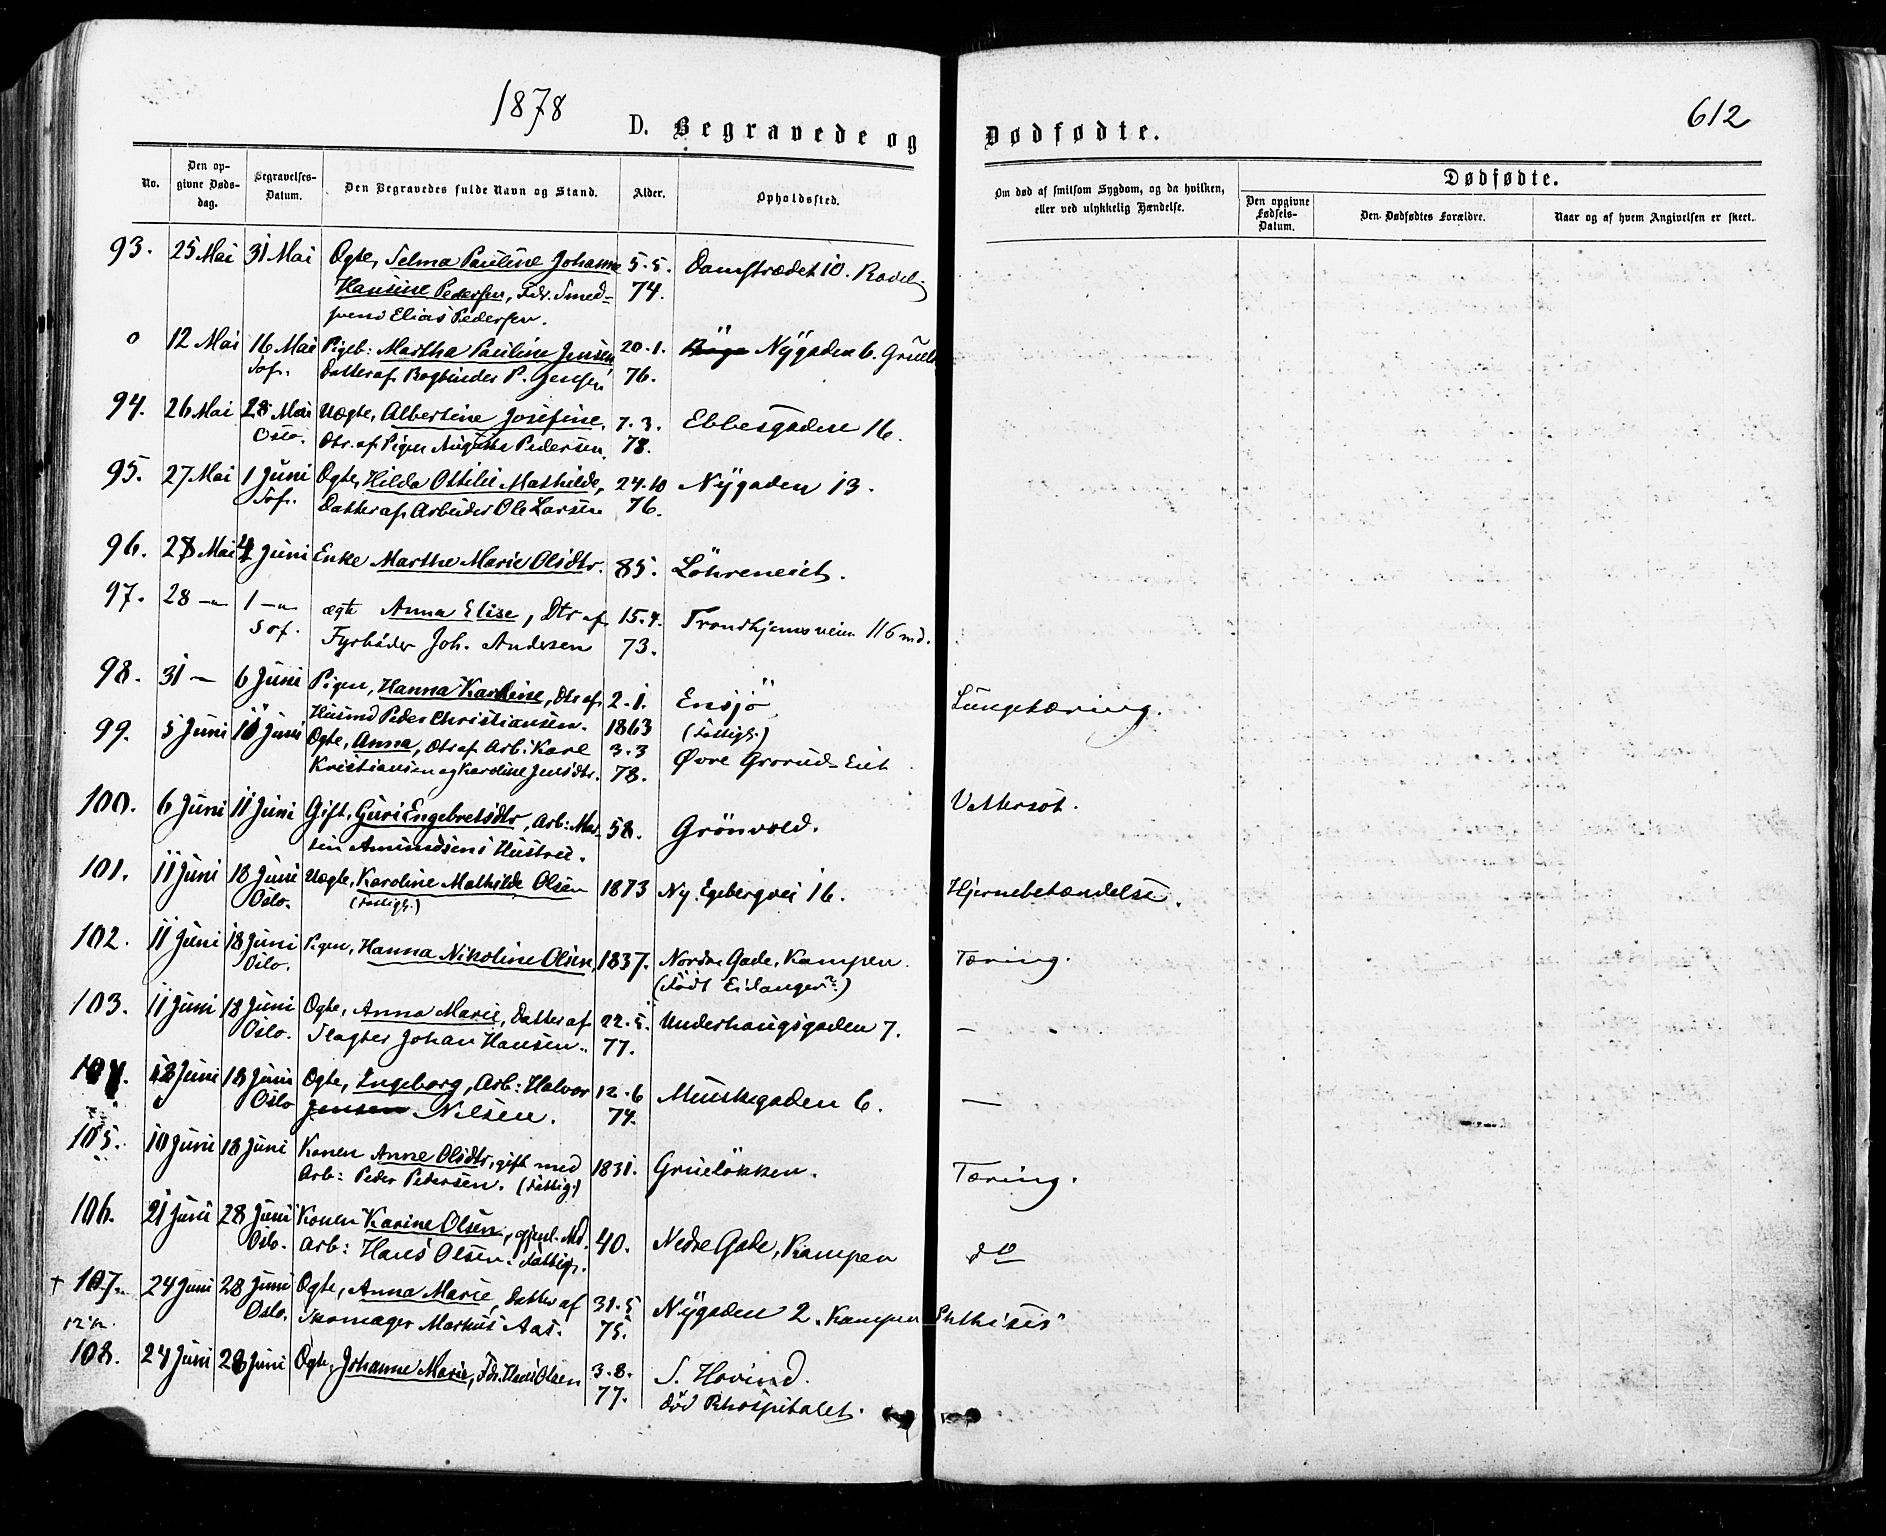 1878
612
D. Begravede og Dødfødte.
No.
Den opgivne Dødsdag.
Begravelses-Datum.
Den Begravedes fulde Navn og Stand.
Alder.
Opholdssted.
Om død af smitsom Sygdom, og da hvilken, eller ved ulykkelig Hændelse.
Dødfødte.
Den opgivne Fødsels-Datum.
Den Dødfødtes Forældre.
Naar og af hvem Angivelsen er skeet.
93. 25 Mai 31 Mai Ægte, Selma Pauline Johanne 5.5. Damstrædet 10.
Hansine Pedersen, Fdr. Smed- 74.
svend Elias Pedersen.
0 12 Mai 16 Mai Pigeb: Martha Pauline Jensen 20.1. Nÿgaden 6.
Sof. Datter af Bogbinder P. Jensen 76.
94. 26 Mai 28 Mai Uægte, Albertine Josefine, 7.3. Ebbesgaden 16.
Oslo. Dtr. af Pigen Augusta Pedersen. 78.
95. 27 Mai 1 Juni Ægte, Hilda Ottilie Mathilde, 24.10 Nÿgaden 13.
Sof. Datter af Arbeider Ole Larsen 76.
96. Mai 4 Juni Enke Marthe Marie Olsdtr. 85. Löhreneiet.
97. 28 1 ægte Anna Elise, Dtr af 15.4. Trondhjemsveien 116
Sof. Fyrbøder Joh. Andersen 73.
98. 31 — 6 Juni Pigen, Hanna Karoline, Dtr af 2.1. Ensjö Lungetæring.
Husmd Peder Christiansen. 1863 (Fattigk.)
99. 5 Juni Juni Ægte, Anna, Dtr af Arb: Karl 3.3 Øvre Grorud-Eiet
Kristiansen og Karoline Jensdtr. 78.
100. 6 Juni 11 Juni Gift, Guri Engebretsdtr, Arb: Mar- 58. Grönvold. Vattersot.
tin Amundsens Hustru.
101. 11 Juni 18 Juni Uægte, Karoline Mathilde Olsen 1873 Ny. Egebergvei 16. Hjernebetændelse.
Oslo. (Fattigk.)
102. 11 Juni 18 Juni Pigen, Hanna Nikoline Olsen, 1837. Nordre Gade, Kampen. Tæring.
Oslo. (Födt Eidanger?)
103. 11 Juni 18 Juni Ægte, Anna Marie, Datter af 22.5. Underhaugsgaden 7. —
Oslo. Slagter Johan Hansen. 77.
104. Juni 18 Juni Ægte, Ingeborg, Arb: Halvor 12.6 Munkegaden 6. —
Oslo Jensen Nilsen. 74.
105. 10 Juni 18 Juni Konen Anne Olsdtr, gift med 1831. Grueløkken. Tæring.
Arb: Peder Pedersen. (Fattig.)
106. 21 Juni 28 Juni Konen Karine Olsen, 40. Nedre Gade, Kampen do
Oslo. Arb: Hans Olsen. Fattigv.
+ 107. 24 Juni 28 Juni Ægte, Anna Marie, Datter af 31.5 Nÿgaden 2. Kampen Phthisis
Oslo. Skomager Markus Aas. 75.
108. 24 Juni 28 Juni Ægte, Johanne Marie, Fdr. Hans Olsen 3.8. S. Hovind.
77. död Rhospitalet.